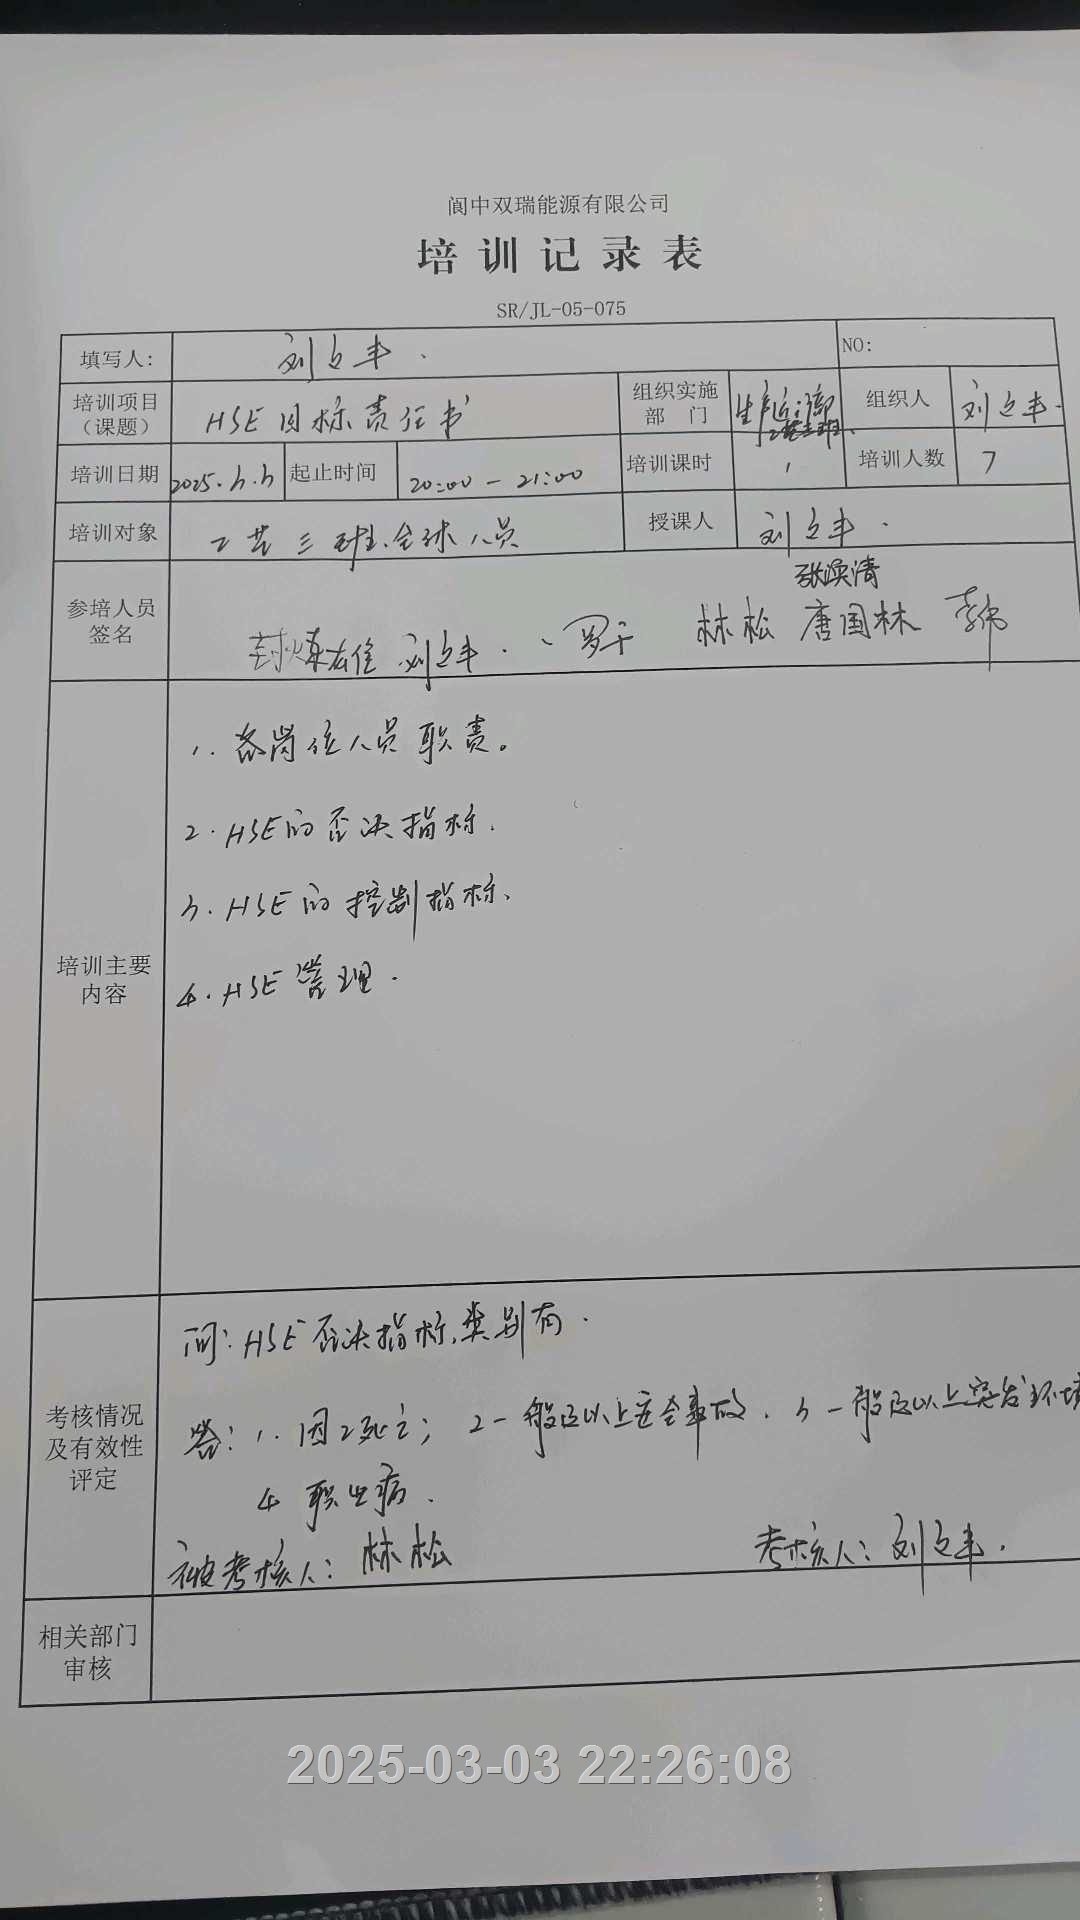 阆中双瑞能源有限公司
培训记录表
SR/JL-05-075
填写人: 刘立丰. NO:
培训项目（课题） HSE目标责任书 组织实施部门 生产运行部工艺三班. 组织人 刘立丰.
培训日期 2025.3.3 起止时间 20:00 — 21:00 培训课时 1 培训人数 7
培训对象 工艺三班.全体人员 授课人 刘立丰.
张涣清
参培人员签名 刘立丰. 罗干 林松 唐国林 李韦
培训主要内容
1. 各岗位人员职责。
2. HSE的否决指标.
3. HSE的控制指标.
4. HSE管理.
考核情况及有效性评定
问: HSE否决指标,类别有.
答: 1. 因工死亡; 2一般及以上安全事故. 3一般及以上突发环境
4 职业病.
被考核人: 林松 考核人: 刘立丰.
相关部门审核
2025-03-03 22:26:08